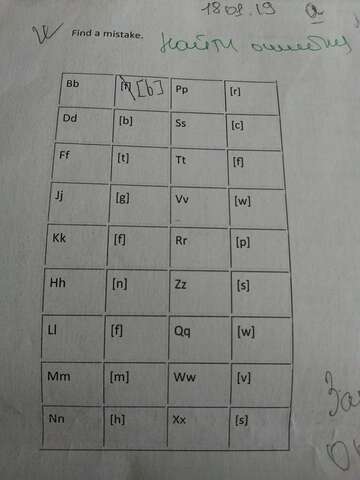 18.01.19 a
Find a mistake. Найти ошибку
Bb [f] [b] Pp [r]
Dd [b] Ss [c]
Ff [t] Tt [f]
Jj [g] Vv [w]
Kk [f] Rr [p]
Hh [n] Zz [s]
Ll [f] Qq [w]
Mm [m] Ww [v]
Nn [h] Xx [s]